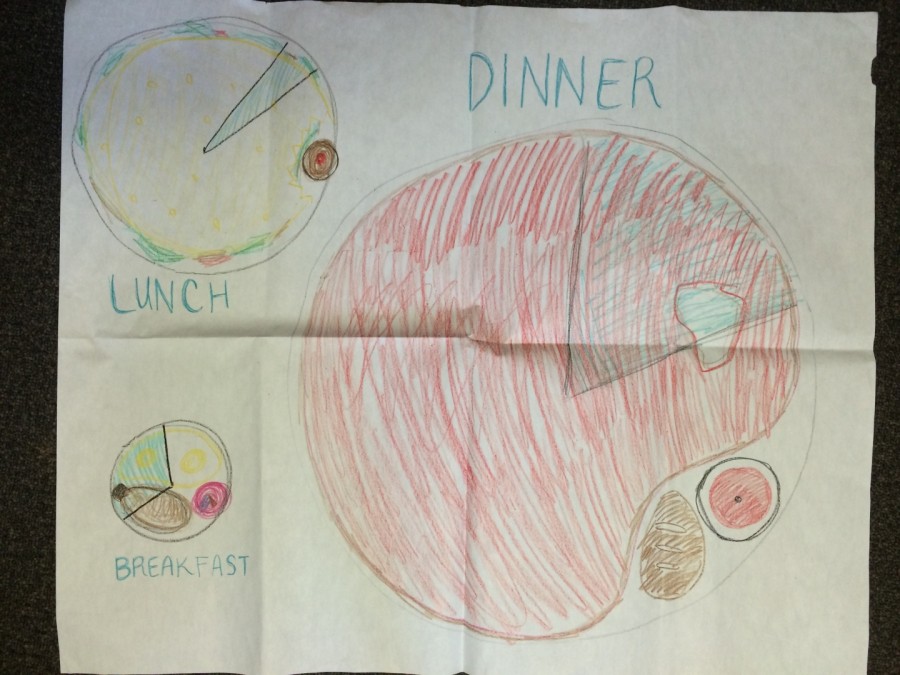 DINNER
LUNCH
BREAKFAST